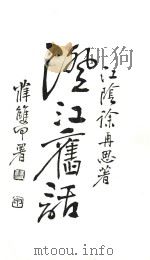 江陰徐再思著
澄江舊話
雙甲署
mtoou.info